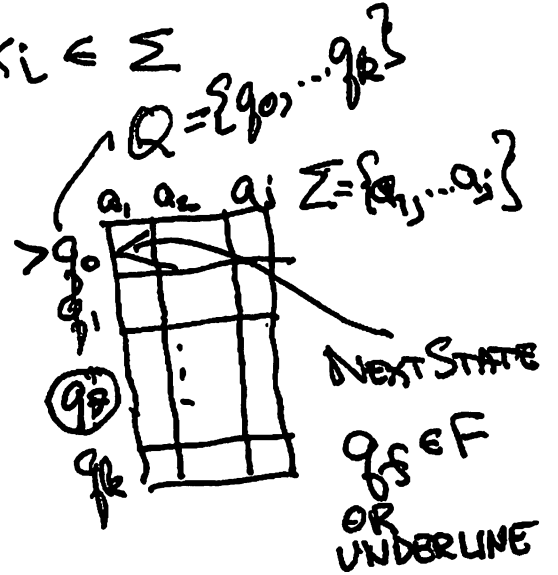 xi ∈ Σ
Q = {q0, ... qk}
a1 a2 aj Σ = {a1, ... aj}
>q0
q1
NEXT STATE
qf
qf ∈ F
qk
OR
UNDERLINE